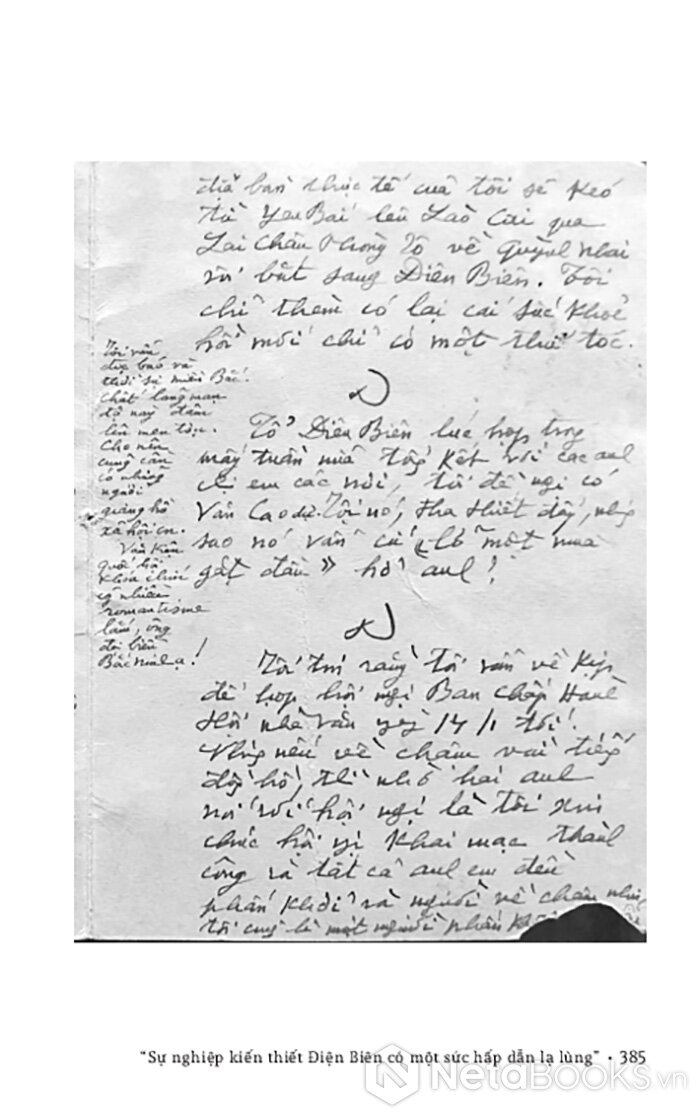 địa bàn thực tế của tôi sẽ kéo
từ Yên Bái lên Lào Cai qua
Lai Châu Phong Tô về Quỳnh Nhai
rồi bắt sang Điện Biên. Tôi
chỉ thèm có lại cái sức khoẻ
hồi mới chỉ có một thứ tóc.
Tôi vẫn
đọc báo và
thời sự miền Bắc.
Chất lãng mạn
độ này đâm
lên men tợn.
Cho nên
cũng cần
có những
người
giang hồ
xã hội cn.
Văn kiện
quốc hội
khóa
có nhiều
romantisme
lắm, ông
đại biểu
Bắc Ninh ạ!
Tổ Điện Biên lúc họp trong
mấy tuần nữa tổng kết với các anh
chị em các nơi, tôi đề nghị có
Văn Cao dự. Tội nó, tha thiết đấy, nhưng
sao nó vẫn cứ "Có một mùa
gặt đầu" hở anh!
Tôi tin rằng tôi vẫn về kịp
để họp hội nghị Ban Chấp Hành
Hội nhà văn ngày 14/1 tới.
Nhưng nếu về chậm vài tiếng
đồng hồ, thì nhờ hai anh
nói với hội nghị là tôi xin
chúc hội nghị khai mạc thành
công và tất cả anh em đều
phấn khởi và người về chậm như
tôi cũng là một người phấn
"Sự nghiệp kiến thiết Điện Biên có một sức hấp dẫn lạ lùng" • 385
NetaBooks.vn